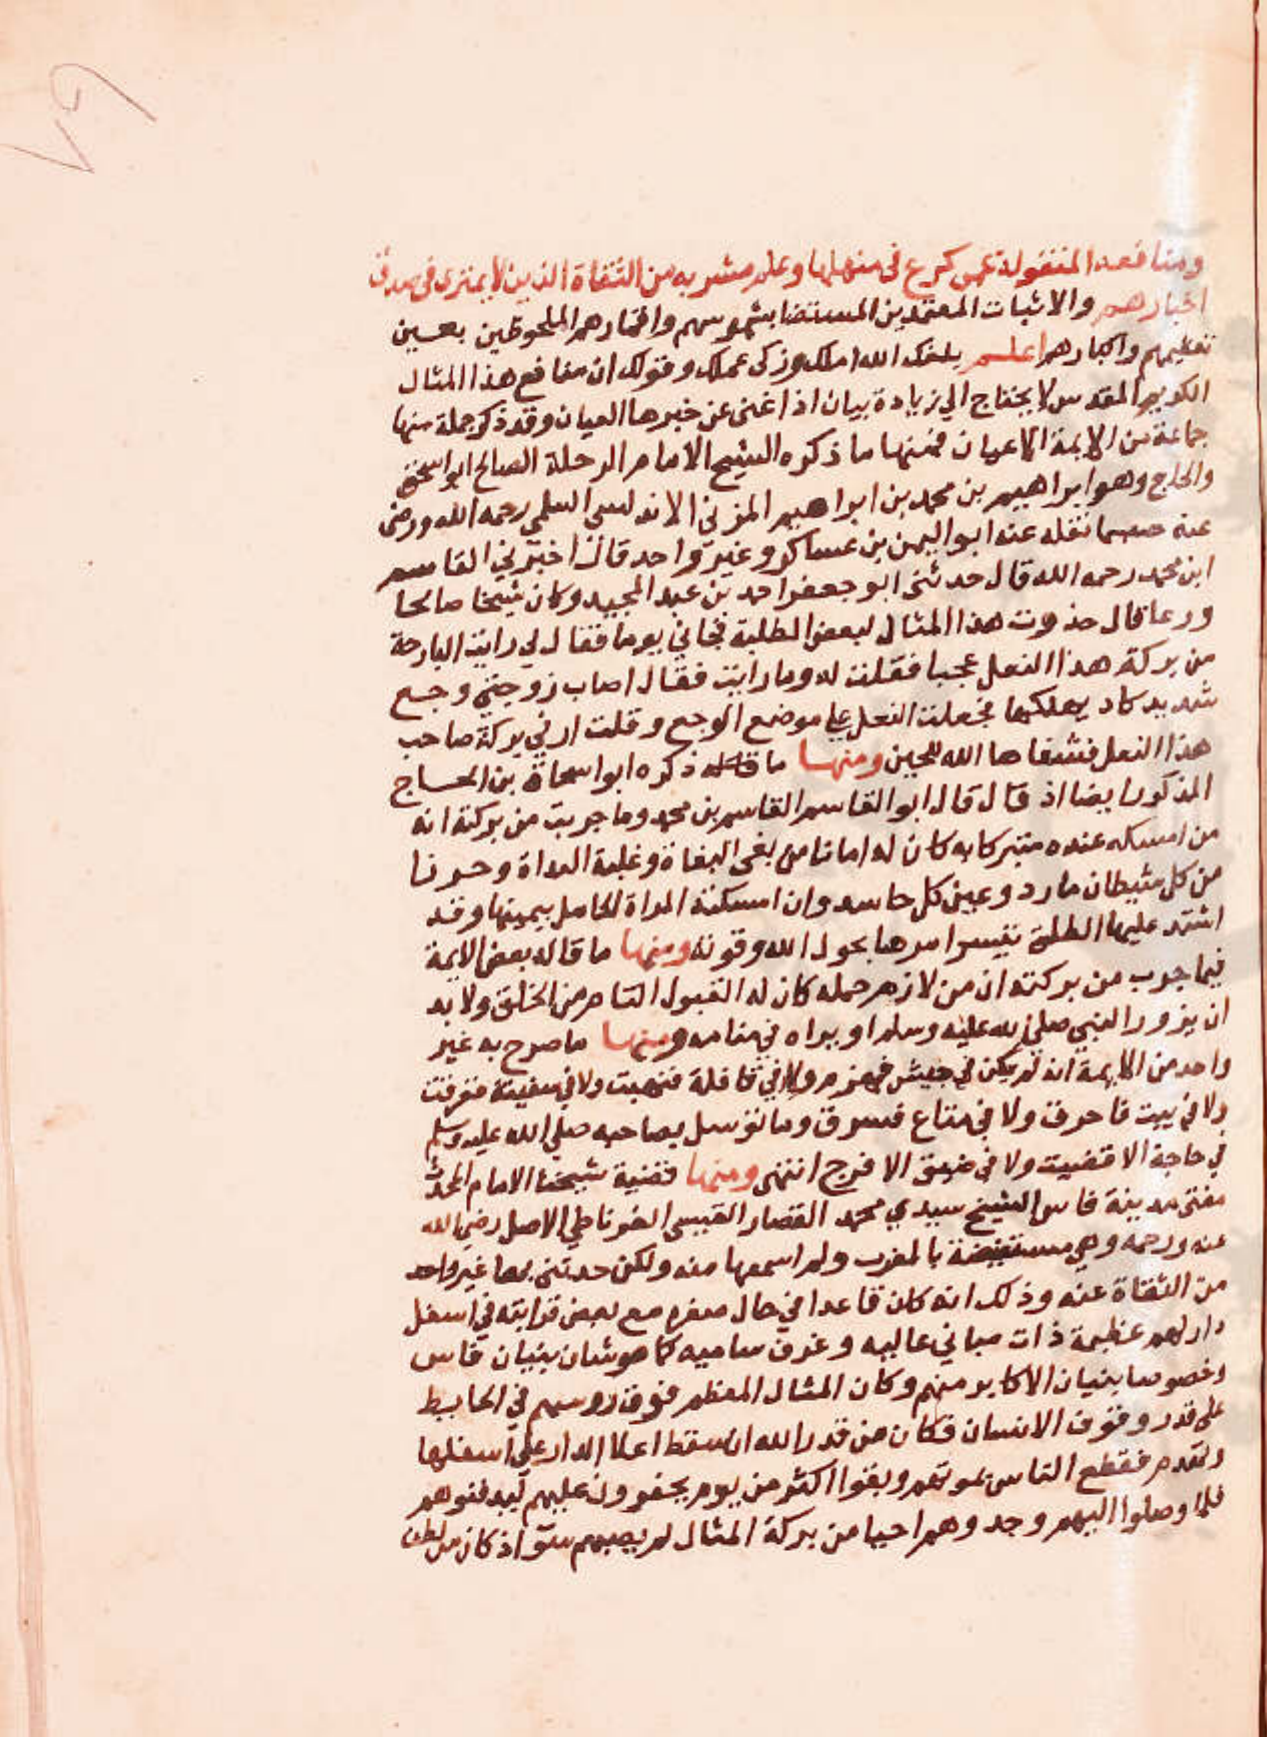 ومنافعه المنقولة عمن كرع في منهلها وعل من مشربه من الثقاة الذين لا يمترى في صدق
اخبارهم والاثبات المعتمدين المستضا بشموسهم واقمارهم الملحوظين بعين
تعظيمهم واكبارهم اعلم بلغك الله املك وزكى عملك وقولك ان منافع هذا المثال
الكريم المقدس لا يحتاج الي زيادة بيان اذ اغنى عن خبرها العيان وقد ذكر جملة منها
جماعة من الايمة الاعيان فمنها ما ذكره الشيخ الامام الرحلة الصالح ابو اسحق
والحاج وهو ابراهيم بن محمد بن ابراهيم المزني الاندلسي السلمي رحمه الله ورضى
عنه حسبما نقله عنه ابو اليمن بن عساكر وغير واحد قال اخبرني القاسم
ابن محمد رحمه الله قال حدثنى ابو جعفر احمد بن عبد المجيد وكان شيخا صالحا
ورعا قال حذوت هذا المثال لبعض الطلبة فجاني يوما فقال لي رايت البارحة
من بركة هذا النعل عجبا فقلت له وما رايت فقال اصاب زوجتي وجع
شديد كاد يهلكها فجعلت النعل على موضع الوجع وقلت ارني بركة صاحب
هذا النعل فشفاها الله للحين ومنها ما ذكره ابو اسحاق بن الحاج
المذكور ايضا اذ قال قال ابو القاسم القاسم بن محمد وما جربت من بركته انه
من امسكه عنده متبركا به كان له امانا من بغى البغاة وغلبة العداة وحرزا
من كل شيطان مارد وعين كل حاسد وان امسكته المراة الحامل بيمينها وقد
اشتد عليها الطلق تيسر امرها بحول الله وقوته ومنها ما قاله بعض الايمة
فيما جرب من بركته ان من لازم حمله كان له القبول التام من الخلق ولا بد
ان يزور النبي صلى الله عليه وسلم او يراه في منامه ومنها ما صرح به غير
واحد من الايمة انه لم يكن في جيش فهزم ولا في قافلة فنهبت ولا في سفينة فغرقت
ولا في بيت فاحرق ولا في متاع فسرق وما توسل بصاحبه صلي الله عليه وسلم
في حاجة الا قضيت ولا في ضيق الا فرج انتهى ومنها قضية شيخنا الامام المحدث
مفتى مدينة فاس الشيخ سيدي محمد القصار القيسى الغرناطي الاصل رضي الله
عنه ورحمه وهي مستفيضة بالمغرب ولم اسمعها منه ولكن حدثنى بها غير واحد
من الثقاة عنه وذلك انه كان قاعدا في حال صغره مع بعض قرابته في اسفل
دار لهم عظيمة ذات مباني عاليه وغرف ساميه كما هو شان بنيان فاس
وخصوصا بنيان الاكابر منهم وكان المثال المعظم فوق روسهم في الحايط
على قدر وقوف الانسان فكان من قدر الله ان سقط اعلا الدار على اسفلها
وتهدم فقطع الناس بموتهم وبقوا اكثر من يوم يحفرون عليهم ليدفنوهم
فلما وصلوا اليهم وجدوهم احيا من بركة المثال لم يصبهم سوٓ اذ كان من لطف